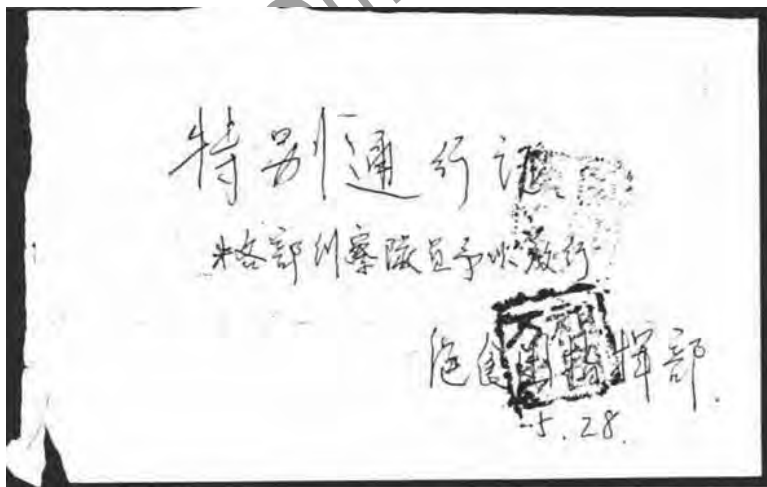 特别通行证
*各部纠察隊员予以放行
绝食团指揮部.
5.28.